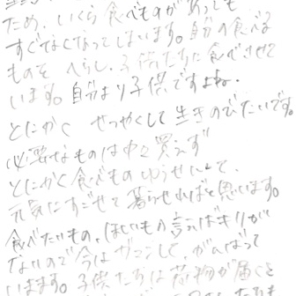 ため、いくら食べものがあっても
すぐなくなってしまいます。自分の食べる
ものを へらし、子供たちに食べさせて
います。自分より子供ですよね。
とにかく せつやくして生きのびたいです。
必要なものは中々買えず
とにかく食べものゆうせんで、
元気にすごせて 暮らせればと思います。
食べたいもの、ほしいもの言えばキリが
ないので今はガマンして、がんばって
いまます。子供たちは荷物が届くと